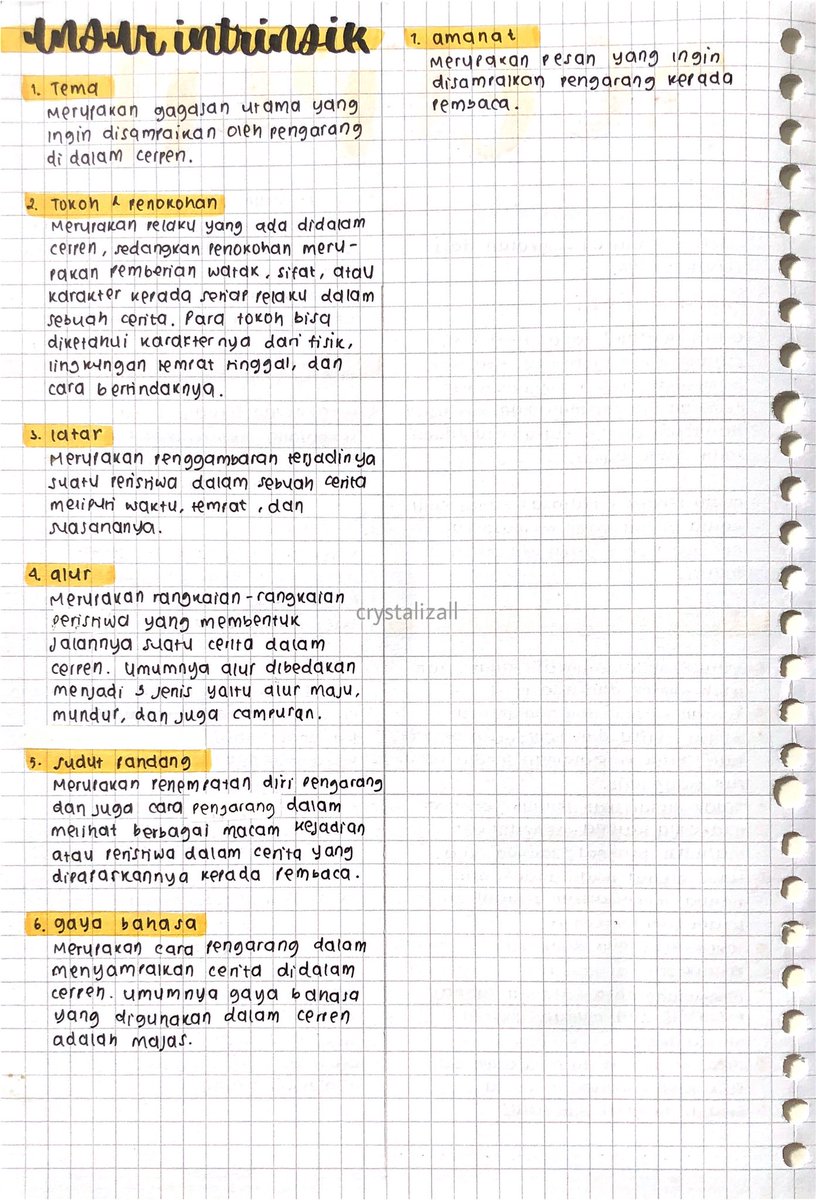 unsur intrinsik
1. Tema
Merupakan gagasan utama yang
ingin disampaikan oleh pengarang
di dalam cerpen.
2. Tokoh & penokohan
Merupakan pelaku yang ada didalam
cerpen, sedangkan penokohan meru-
pakan pemberian watak, sifat, atau
karakter kepada setiap pelaku dalam
sebuah cerita. Para tokoh bisa
diketahui karakternya dari fisik,
lingkungan tempat tinggal, dan
cara bertindaknya.
3. latar
Merupakan penggambaran terjadinya
suatu peristiwa dalam sebuah cerita
meliputi waktu, tempat, dan
suasananya.
4. alur
Merupakan rangkaian-rangkaian
peristiwa yang membentuk
jalannya suatu cerita dalam
cerpen. umumnya alur dibedakan
menjadi 3 jenis yaitu alur maju,
mundur, dan juga campuran.
5. sudut pandang
Merupakan penempatan diri pengarang
dan juga cara pengarang dalam
melihat berbagai macam kejadian
atau peristiwa dalam cerita yang
dipaparkannya kepada pembaca.
6. gaya bahasa
Merupakan cara pengarang dalam
menyampaikan cerita didalam
cerpen. umumnya gaya bahasa
yang digunakan dalam cerpen
adalah majas.
7. amanat
Merupakan pesan yang ingin
disampaikan pengarang kepada
pembaca.
crystalizall